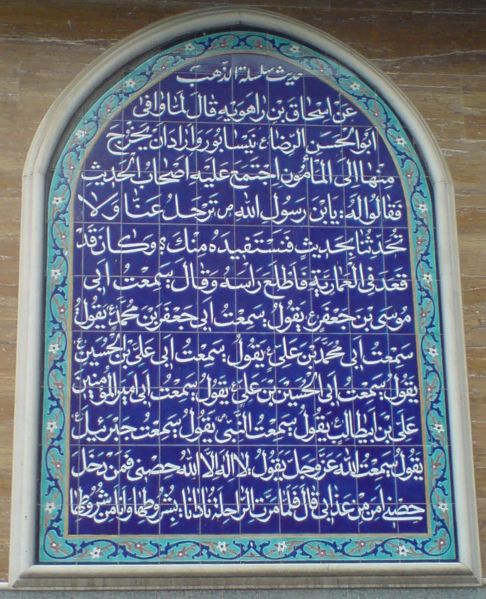 حدیث سلسلة الذهب
عن اسحاق بن راهویه قال لما وافی
ابوالحسن الرضا ع نیسابور و اراد ان یخرج
منها الی المأمون اجتمع علیه اصحاب الحدیث
فقالوا له: یابن رسول الله ص ترحل عنا و لا
تحدثنا بحدیث فنستفیده منک؟ و کان قد
قعد فی العماریة فاطلع راسه و قال: سمعت ابی
موسی بن جعفر ع یقول: سمعت ابی جعفر بن محمد ع یقول
سمعت ابی محمد بن علی ع یقول: سمعت ابی علی بن الحسین ع
یقول: سمعت ابی الحسین بن علی ع یقول: سمعت ابی امیرالمؤمنین
علی بن ابیطالب یقول: سمعت النبی یقول: سمعت جبرئیل
یقول سمعت الله عز و جل یقول: لا اله الا الله حصنی فمن دخل
حصنی امن من عذابی قال فلما مرت الراحلة نادانا: بشروطها و انا من شروطها